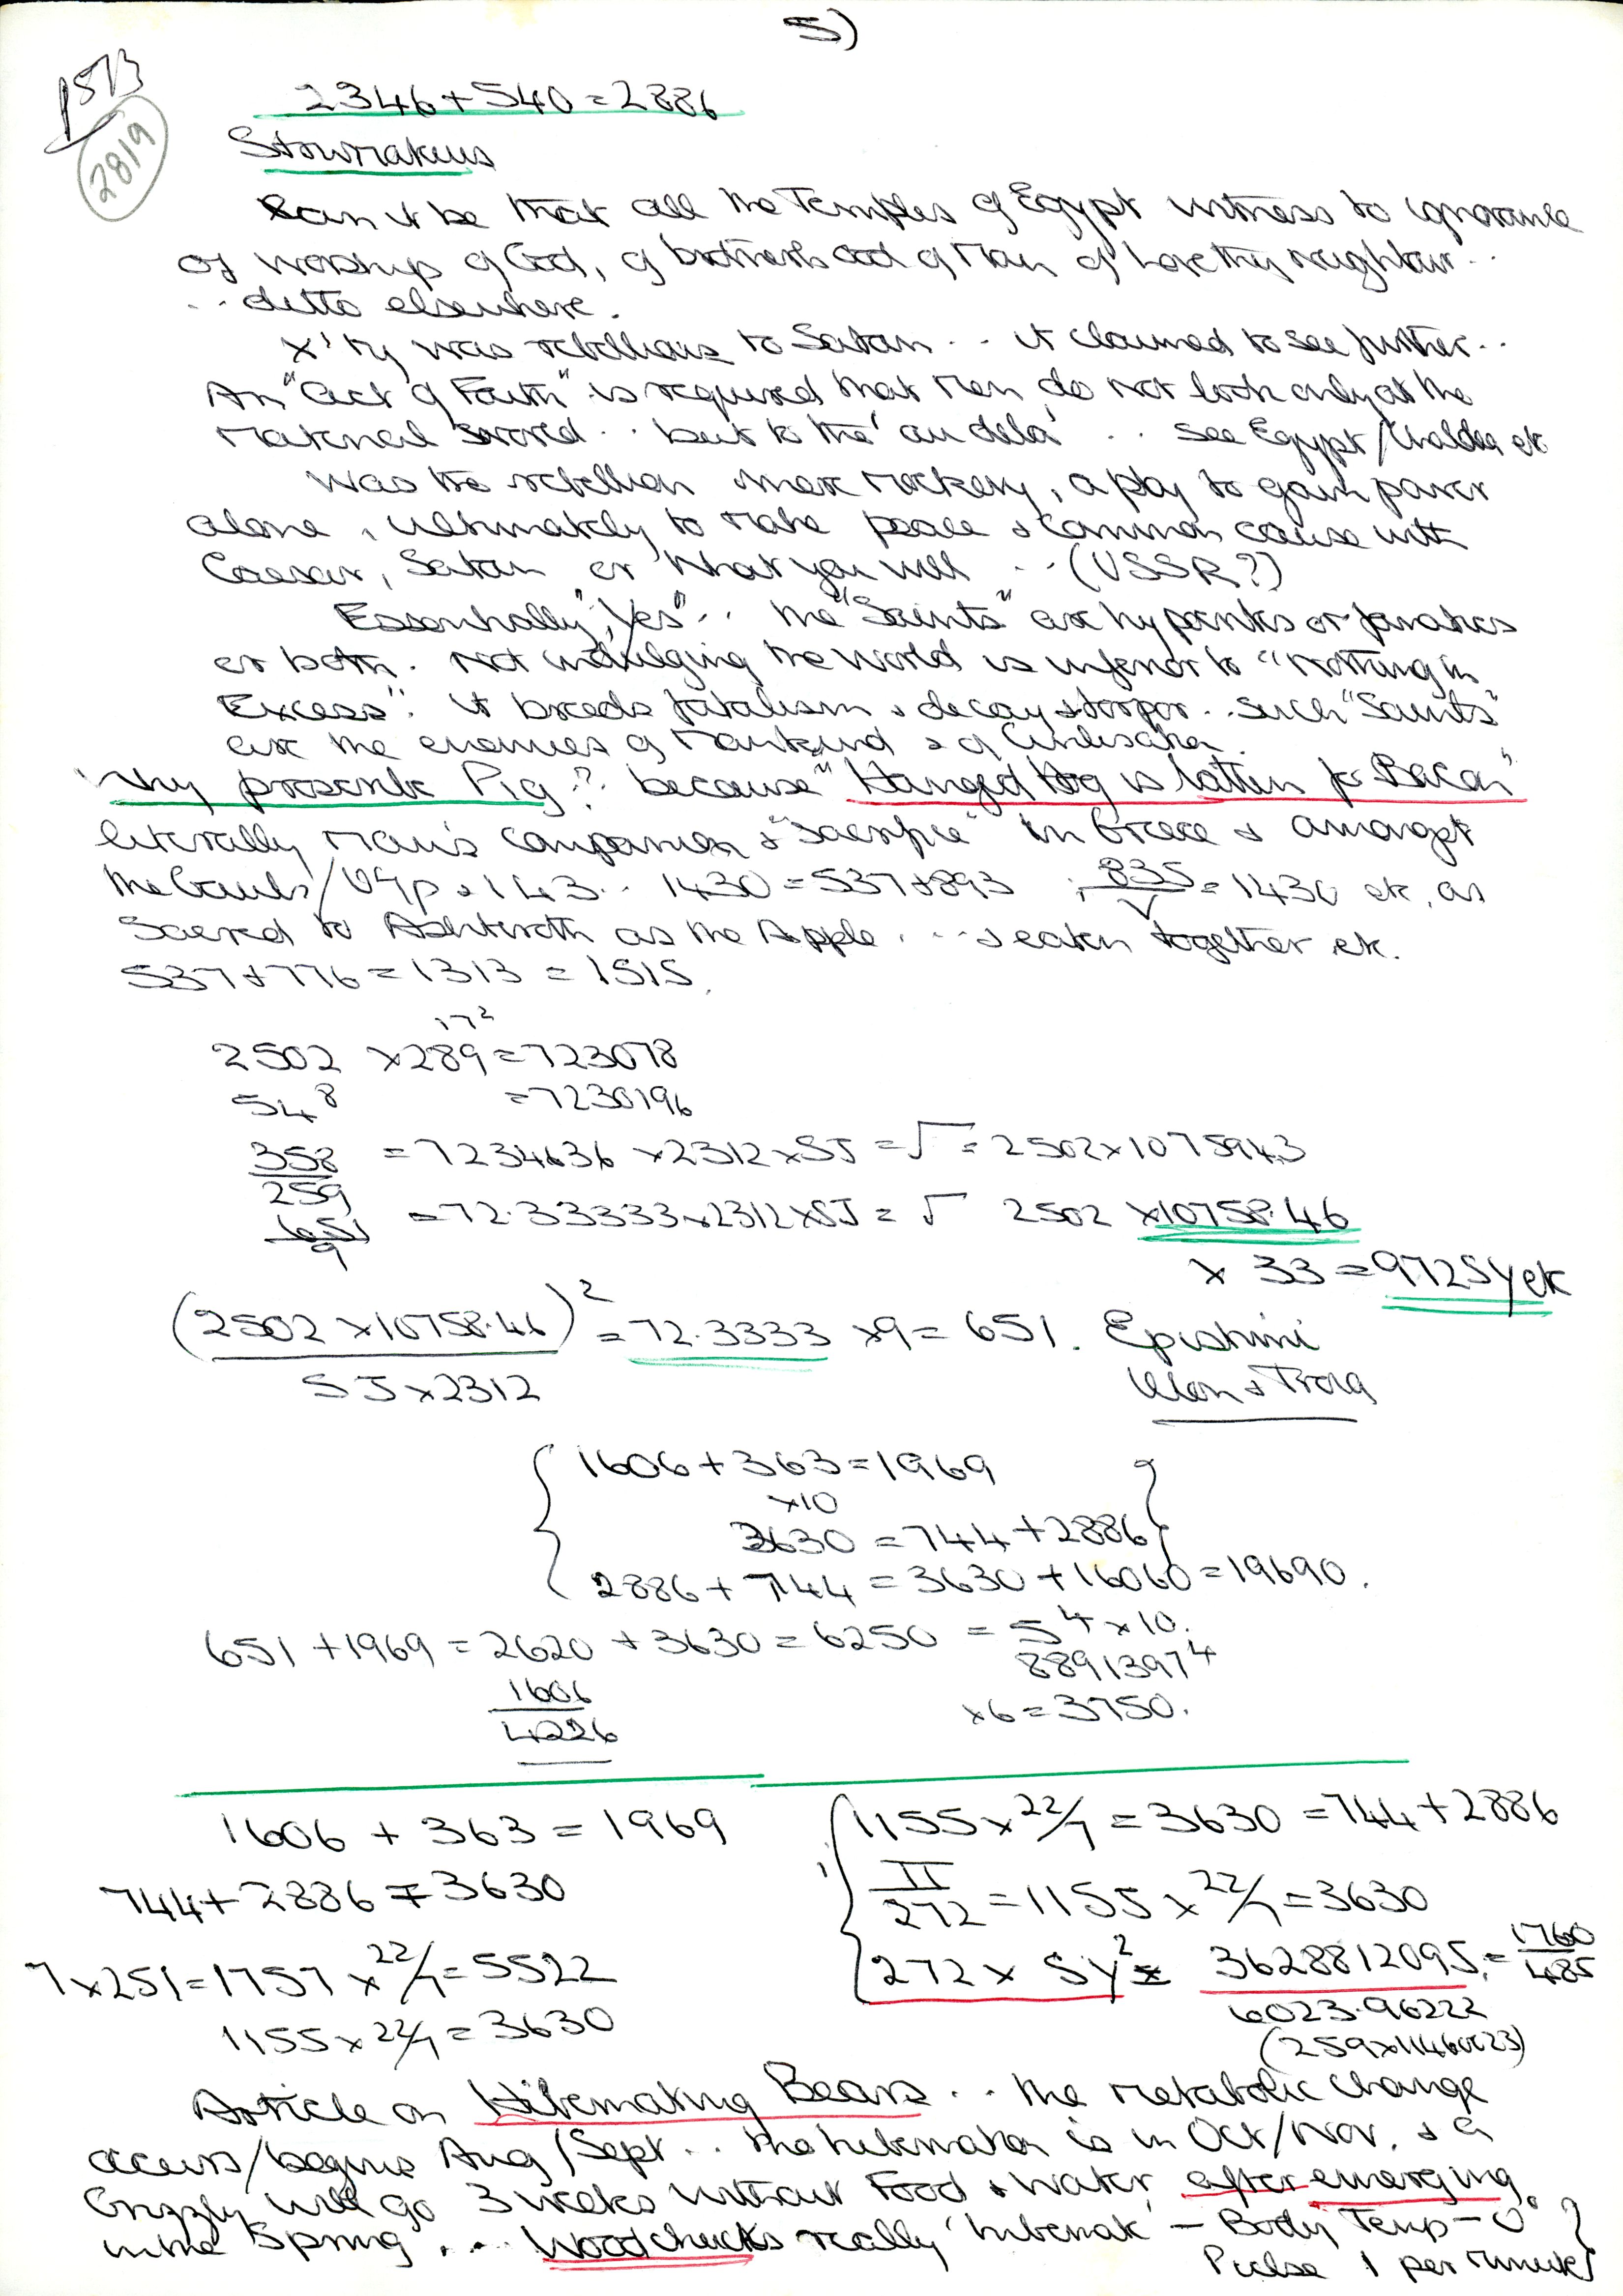 5)
1513
2819
2346+540=2886
Can it be that all the Temples of Egypt witness to ignorance
of worship of God, of brotherhood of Man of Love thy neighbour..
.. ditto elsewhere.
X'ty was rebellious to Satan... it claimed to see further..
An "act of Faith" is required that Men do not look only at the
Material World.. but to the 'au dela' .. see Egypt/Chaldea etc
Was the rebellion mere Mockery, a play to gain power
alone, ultimately to make peace & common cause with
Caesar, Satan or what you will ... (USSR?)
Essentially, "Yes".. the "Saints" are hypocrites or fanatics
or both. Not indulging the World is inferior to "Nothing in
Excess". It breeds fatalism & decay & torpor.. such "Saints"
are the enemies of Mankind & of Civilisation.
Why proscribe Pig? because "Hanged Hog is latten for Bacon"
literally Man's companion & "sacrifice" in Greece & amongst
the Gauls/ & 143.. 1430=537+893 ; 835/V=1430 etc, as
Sacred to Ashteroth as the Apple... & eaten together etc.
537+776=1313=1515.
17²
2502 ×289=723078
54⁸ =7230196
358/259 =7234636 ×2312×SJ =√= 2502×1075943
651/9 =72.33333×2312×SJ = √ 2502 ×10758.46
× 33=9725Yetc
(2502 ×10758.46)² / SJ×2312 =72.3333 ×9= 651. Epistimi
Ulon & Troia
1606+363=1969
×10
3630 =744+2886
2886+744=3630+16060=19690.
651+1969=2620 +3630=6250 =5⁴×10.
8891397⁴
1606
4226
×6=3750.
1606 + 363 = 1969
744+2886=3630
7×251=1757×22/7=5522
1155×22/7=3630
1155×22/7=3630=744+2886
II/272=1155×22/7=3630
272×SY²= 3628812095/6023.96222 = 1760/485
(259×11460023)
Article on Hibernating Bears .. the metabolic change
occurs/begins Aug/Sept.. the hibernation is in Oct/Nov. & a
Grizzly will go 3 weeks without Food & Water after emerging
in the Spring .... Woodchucks really 'hibernate' – Body Temp – 0°
Pulse 1 per minute